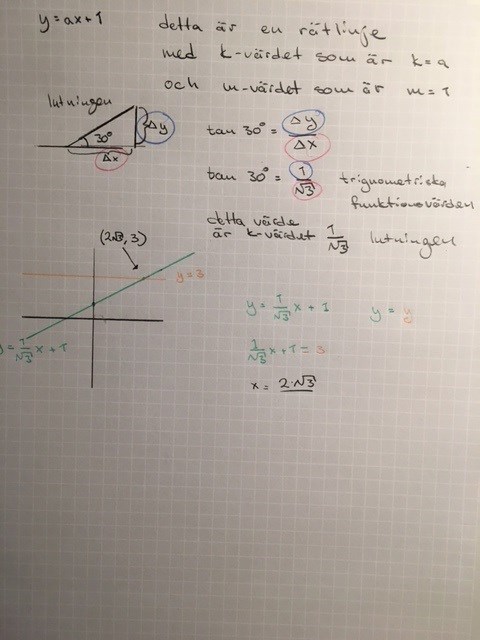 y = ax + 1
detta är en rätlinje
med k-värdet som är k = a
och m-värdet som är m = 1
lutningen
30°
Δy
Δx
tan 30° = Δy/Δx
tan 30° = 1/√3 trignometriska
funktionsvärden
detta värde
är k-värdet 1/√3 lutningen
(2√3, 3)
y = 3
y = 1/√3 x + 1
y = 1/√3 x + 1 y = y
1/√3 x + 1 = 3
x = 2·√3